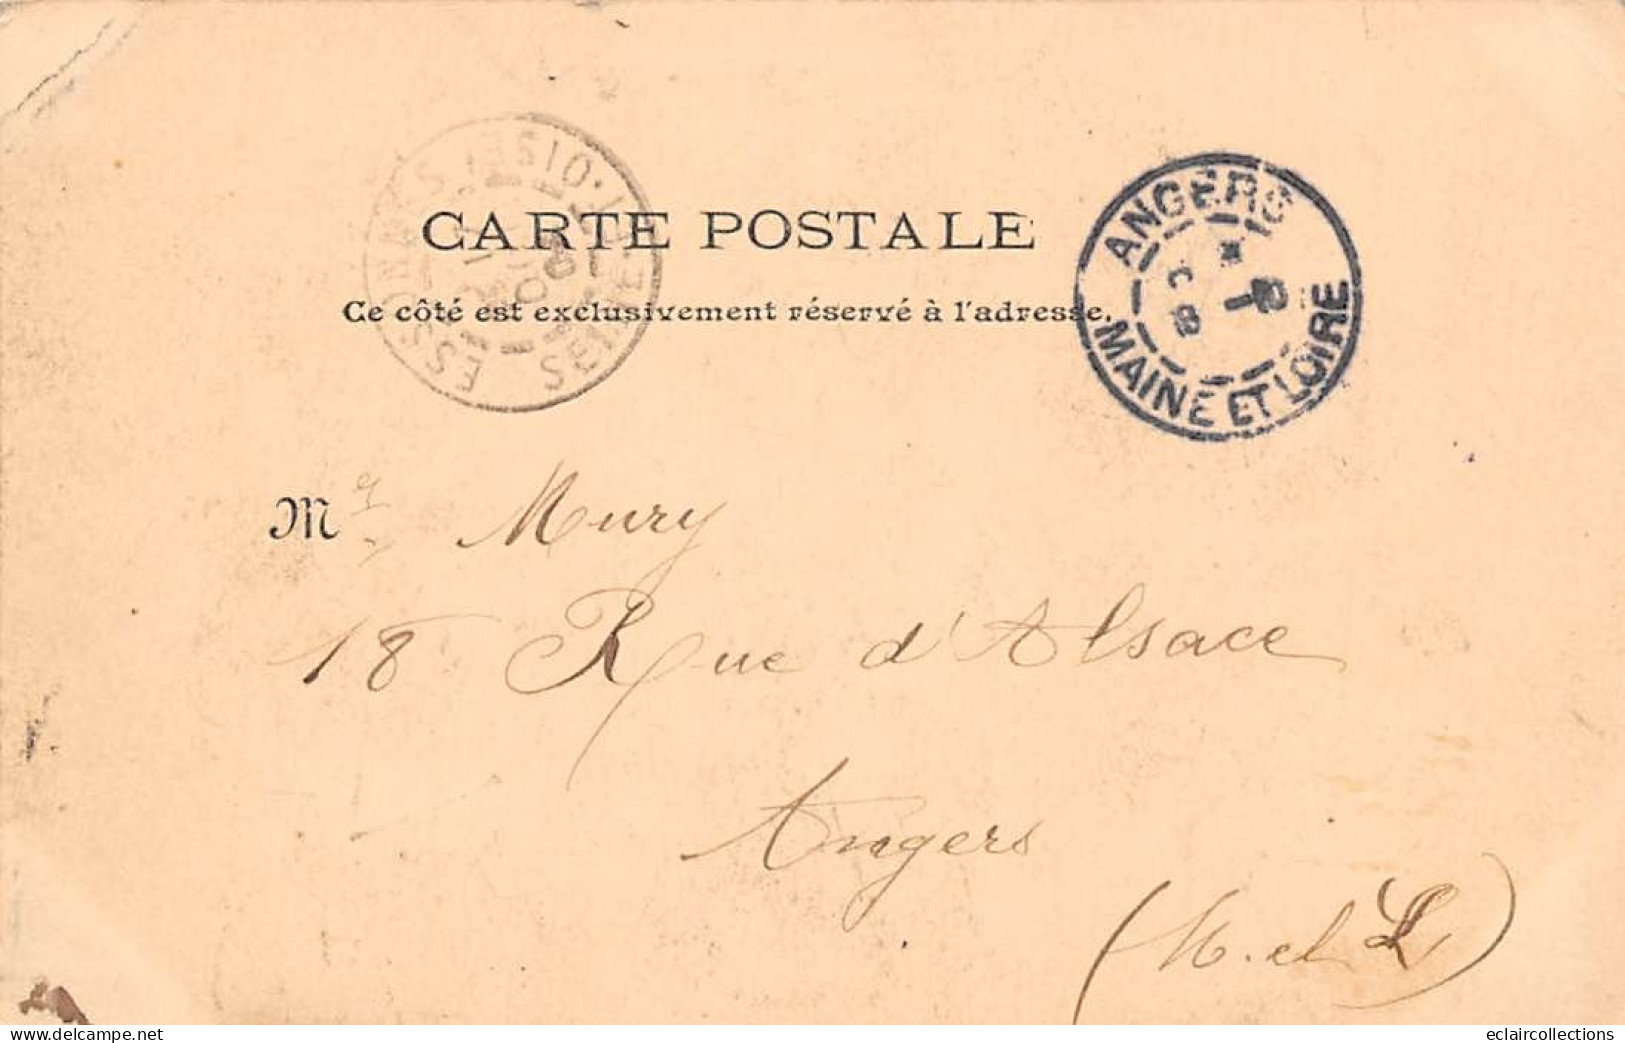 ESSONNES
SEINE-ET-OISE
ANGERS
MAINE ET LOIRE
CARTE POSTALE
Ce côté est exclusivement réservé à l'adresse.
Mr Mury
18 Rue d'Alsace
Angers
(M. et L)
www.delcampe.net
eclaircollections